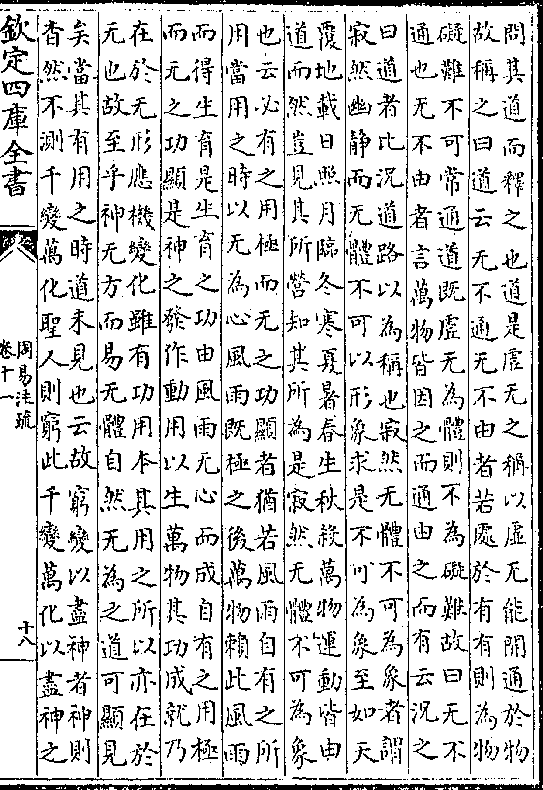 問其道而釋之也道是虛无之稱以虛无能開通於物
故稱之曰道云无不通无不由者若處於有有則為物
礙難不可常通道既虛无為體則不為礙難故曰无不
通也无不由者言萬物皆因之而通由之而有云況之
曰道者比況道路以為稱也寂然无體不可為象者謂
寂然幽靜而无體不可以形象求是不可為象至如天
覆地載日照月臨冬寒夏暑春生秋殺萬物運動皆由
道而然豈見其所營知其所為是寂然无體不可為象
也云必有之用極而无之功顯者猶若風雨自有之所
用當用之時以无為心風雨既極之後萬物賴此風雨
而得生育是生育之功由風雨无心而成自有之用極
而无之功顯是神之發作動用以生萬物其功成就乃
在於无形應機變化雖有功用本其用之所以亦在於
无也故至乎神无方而易无體自然无為之道可顯見
矣當其有用之時道未見也云故窮變以盡神者神則
杳然不測千變萬化聖人則窮此千變萬化以盡神之
欽定四庫全書
周易注疏
卷十一
十八